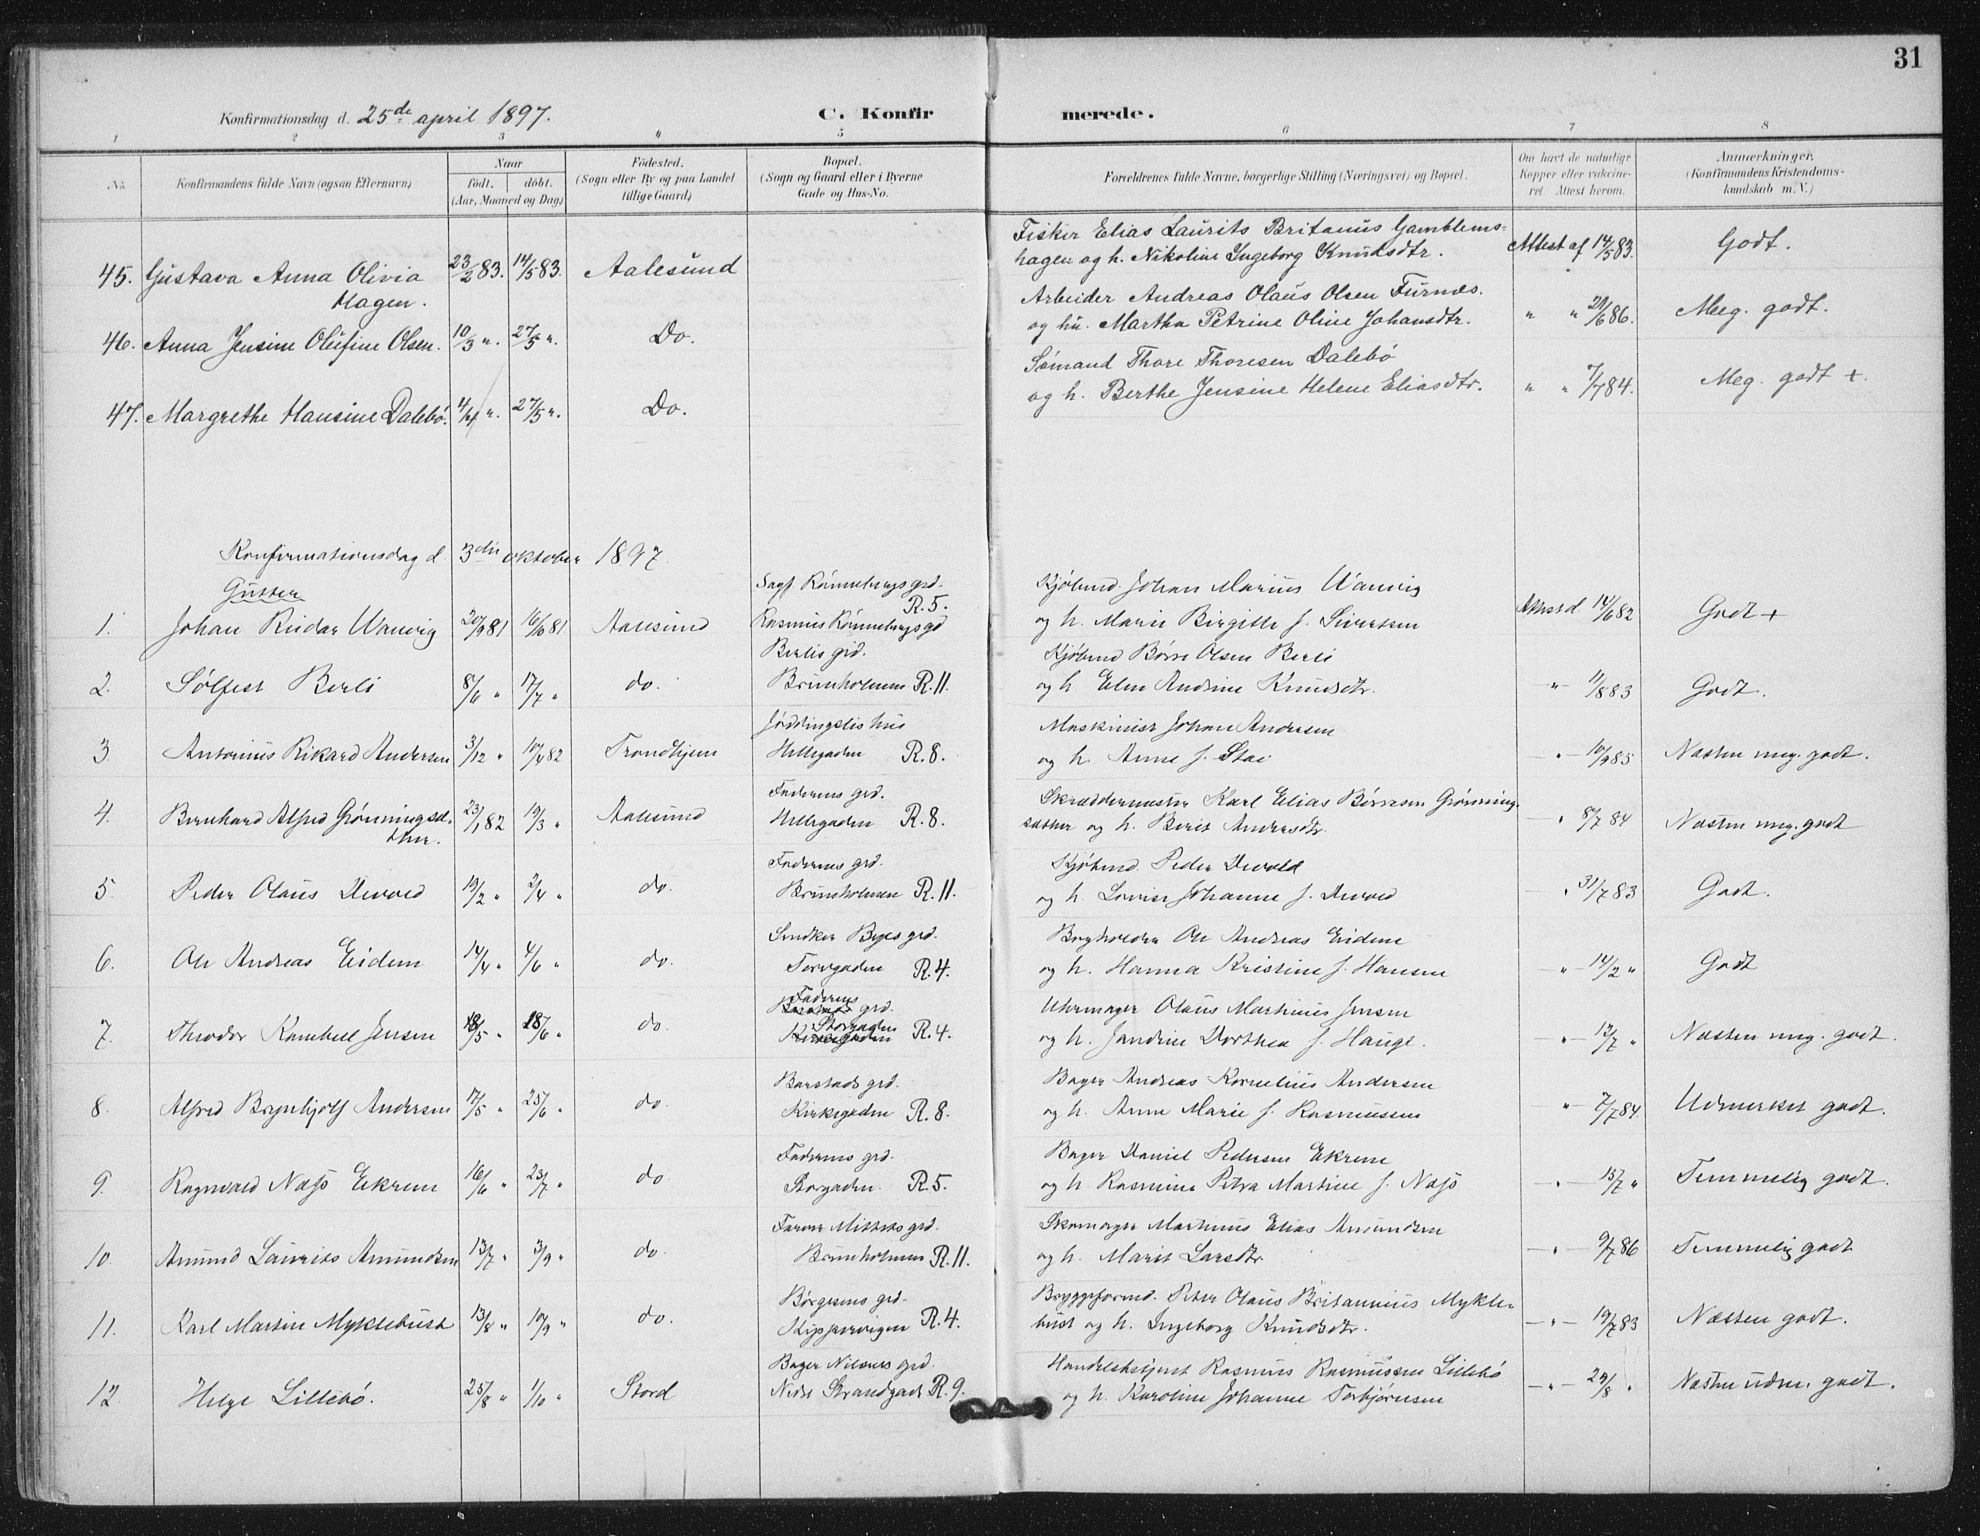 31
Konfirmationsdag d. 25de april 1897.
C. Konfirmerede.
1 2 3 4 5 6 7 8
No.
Konfirmandens fulde Navn (ogsaa Efternavn)
Naar
født. døbt.
(Aar, Maaned og Dag)
Fødested.
(Sogn eller By og paa Landet
tillige Gaard)
Bopæl.
(Sogn og Gaard eller i Byerne
Gade og Hus-No.
Forældrenes fulde Navne, borgerlige Stilling (Næringsvei) og Bopæl.
Om havt de naturlige
Kopper eller vakcine-
ret. Attest herom.
Anmærkninger.
(Konfirmandens Kristendoms-
kundskab m. V.)
45. Gustava Anna Olivia 23/2 83. 14/5 83. Aalesund
Hagen.
Fisker Elias Laurits Britanus Gamblems-
hagen og h. Nikoline Ingeborg Knutsdtr. Attest af 14/5 83. Godt.
46. Anna Jensine Olufine Olsen. 10/3 ". 27/5 ". Do.
Arbeider Andreas Olaus Olsen Furnæs.
og hu. Martha Petrine Oline Johansdtr. " " 21/6 86. Meg. godt.
47. Margrethe Hansine Dalebø. 4/4 ". 27/5 ". Do.
Sømand Thore Thoresen Dalebø
og h. Berthe Jensine Helene Eliasdtr. " " 7/7 84. Meg. godt +.
Konfirmationsdag d. 3die oktober 1897.
Gutter
1. Johan Reidar Wanvig 20/9 81 16/10 81 Aalesund
R. 5.
Rasmus Rønnebergs gd
Kjøbmd. Johan Marius Wanvig
og h. Marie Birgitte f. Sivertsen Attest d. 14/6 82 Godt +
2. Sølfest Berli 8/6 " 17/7 " do.
Berlis grd.
Brunholmen R. 11.
Kjøbmd Børre Olsen Berli
og h Elen Andrine Knudsdtr. " 11/8 83 Godt.
3. Antonius Rikard Andersen 31/12 " 10/4 82 Trondhjem
hus
Hellegaden R. 8.
Maskinist Johan Andersen
og h. Anne f. Stai " 10/9 85 Næsten meg. godt.
4. Bernhard Alfred Grønningsæ- 23/1 82 19/3 " Aalesund
ther.
Faderens grd.
Hellegaden R. 8.
Skræddermester Karl Elias Børresen Grønning-
sæther og h. Berit Andersdtr. " 8/7 84 Næsten meg. godt
5 Peder Olaus Devold 19/2 " 2/4 " do.
Faderens grd.
Brunholmen R. 11.
Kjøbmd. Peder Devold
og h. Lovise Johanne f. Devold " 31/7 83 Godt.
6. Ole Andreas Eidem 14/4 " 4/6 " do.
Snedker Byes grd.
Torvgaden R. 4.
Bogholder Ole Andreas Eidem
og h. Hanna Kristine f. Hansen " 14/2 " Godt
7. Theodor Kambell Jensen 18/5 " 18/6 " do.
Faderens grd.
Storgaden R. 4.
Uhrmager Olaus Martinus Jensen
og h. Jandine Dorthea f. Hauge. " 12/7 " Næsten meg. godt.
8. Alfred Brynhjolf Andersen 17/5 " 25/6 " do.
Barstads grd.
Kirkegaden R. 8.
Bager Andreas Kornelius Andersen
og h. Anne Marie f. Rasmussen " 7/7 84. Udmerket godt.
9. Ragnvald Næsø Ekrem 16/6 " 23/7 " do.
Faderens grd.
Storgaden. R. 5.
Bager Daniel Pedersen Ekrem
og h. Rasmine Petra Martine f. Næsø " 13/7 " Temmelig godt.
10. Amund Laurits Amundsen 13/7 " 3/9 " do.
grd.
Brunholmen R. 11.
Skomager Martinus Elias Amundsen
og h. Marit Larsdtr. " 9/7 86 Temmelig godt
11. Karl Martin Myklebust 13/8 " 10/9 " do.
Børgesens grd.
Kippervigen R. 4.
Bryggeformd. Peter Olaus Britannius Mykle-
bust og h. Ingeborg Knudsdtr. " 19/7 83 Næsten godt.
12. Helge Lillebø. 25/8 " 1/10 " Stord
Bager Nilsens grd.
Nedre Strandgade R. 9.
Handelsbetjent Rasmus Rasmussen Lillebø
og h. Karoline Johanne Torbjørnsen " 24/8 " Næsten udm. godt.